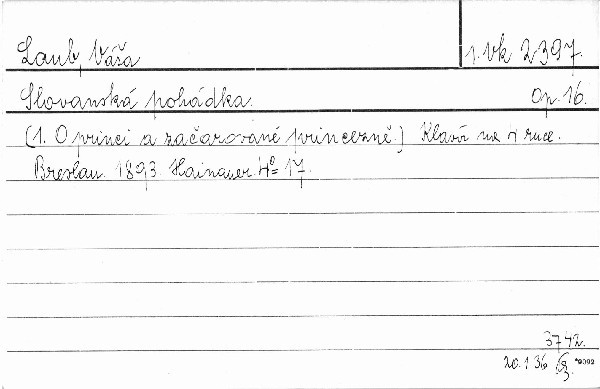 Laub, Váša 1. vk 2397.
Slovanská pohádka. Op. 16.
(1. O princi a začarované princezně.) Klavír na 2 ruce.
Breslau. 1893. Hainauer. 4° 17.
3742.
20.1.36